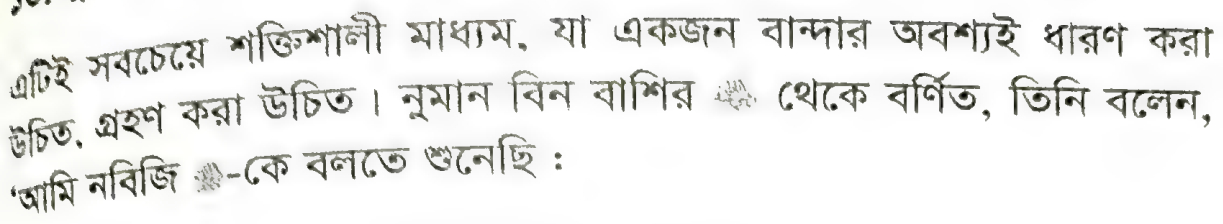 এটিই সবচেয়ে শক্তিশালী মাধ্যম, যা একজন বান্দার অবশ্যই ধারণ করা
উচিত, গ্রহণ করা উচিত। নুমান বিন বাশির থেকে বর্ণিত, তিনি বলেন,
‘আমি নবিজি -কে বলতে শুনেছি :